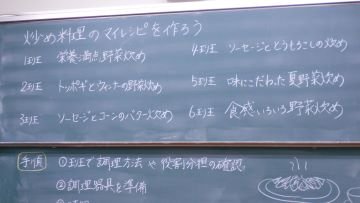 炒め料理のマイレシピを作ろう
1班 栄養満点野菜炒め
2班 トッポギとウィンナーの野菜炒め
3班 ソーセージとコーンのバター炒め
4班 ソーセージととうもろこしの炒め
5班 味にこだわった夏野菜炒め
6班 食感いろいろ野菜炒め
手順 ①班で調理方法や役割分担の確認
②調理器具を準備